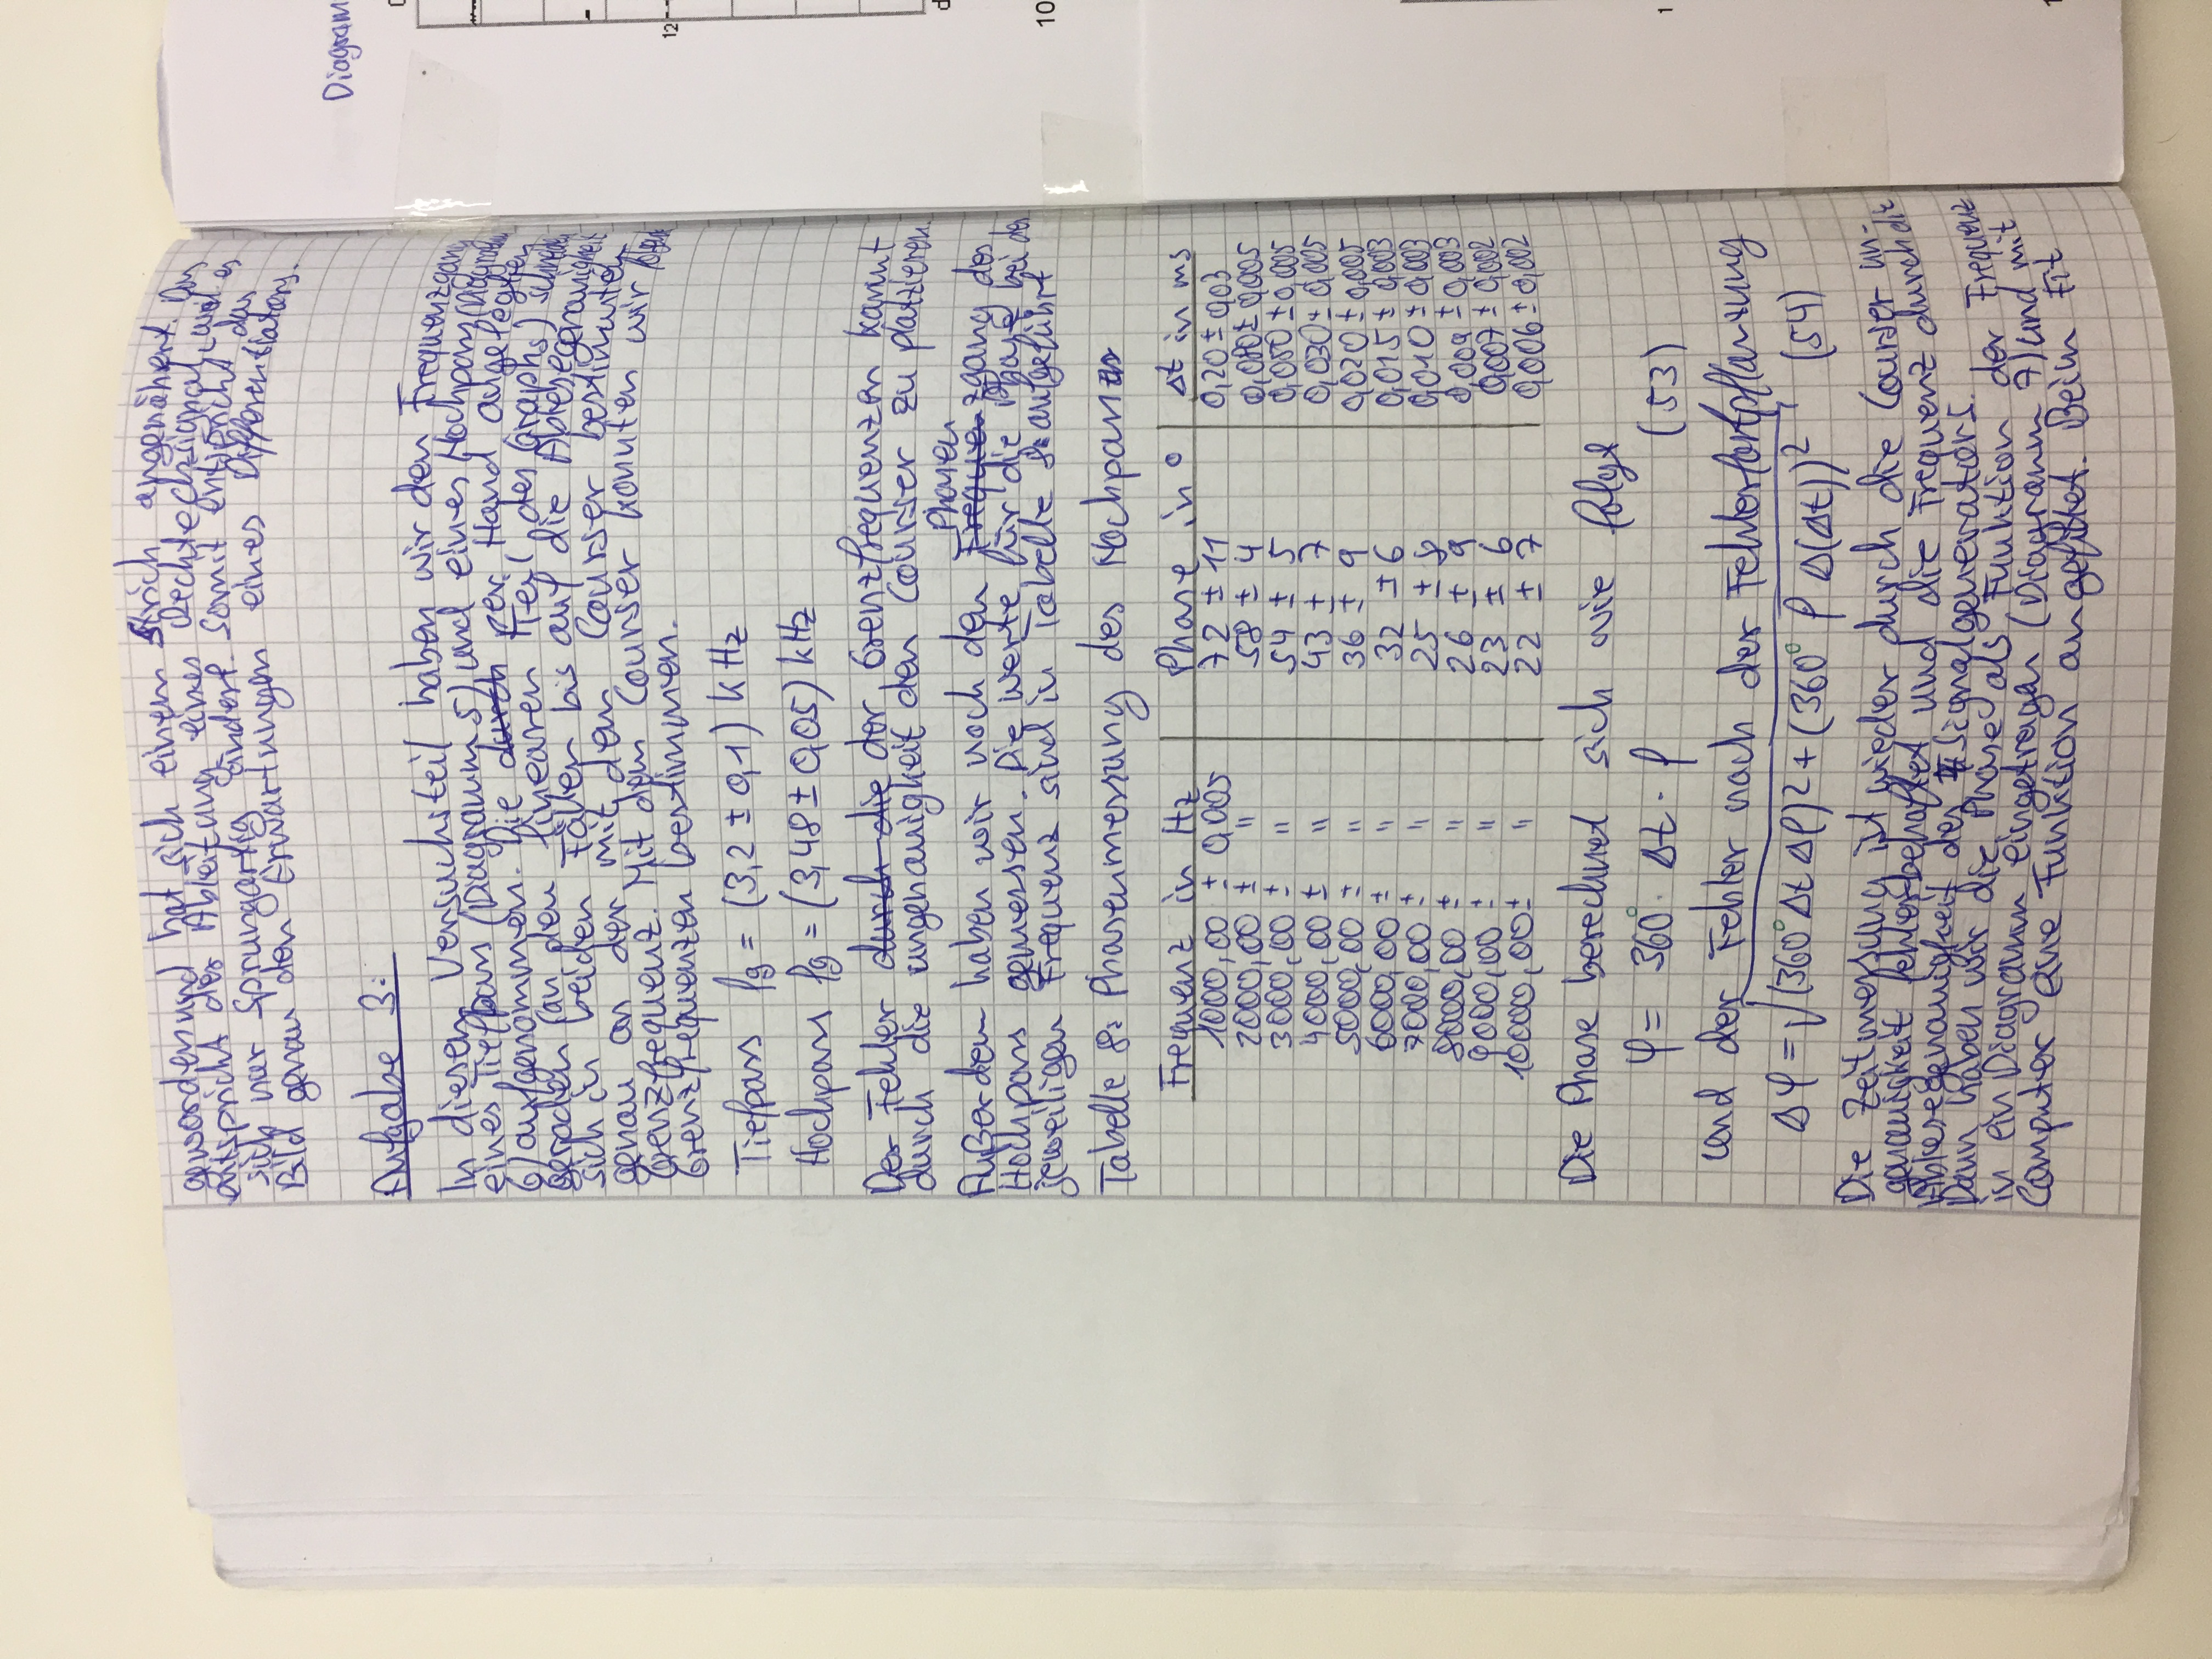 geworden und hat sich einem Strich angenähert. Das
entspricht der Ableitung eines Rechtecksignal, weil es
sich nur Sprungartig ändert. Somit entspricht das
Bild genau den Erwartungen eines Differentiators.
Aufgabe 3:
In diesem Versuchsteil haben wir den Frequenzgang
eines Tiefpass (Diagramm 5) und eines Hochpass (Diagramm
6) aufgenommen. Die durch per Hand angelegten
Geraden (an den linearen Teil des Graphs) schneiden
sich in beiden Fällen bis auf die Ablesegenauigkeit
genau an der mit dem Courser bestimmten
Grenzfrequenz. Mit dem Courser konnten wir folgende
Grenzfrequenzen bestimmen.
Tiefpass fg = (3,2 ± 0,1) kHz
Hochpass fg = (3,48 ± 0,05) kHz
Der Fehler durch die der Grenzfrequenzen kommt
durch die ungenauigkeit den Courser zu platzieren.
Phasen
Außerdem haben wir noch den Frequenzgang des
Hochpass gemessen. Die werte für die Phase bei der
jeweiligen Frequenz sind in Tabelle 8 aufgeführt
Tabelle 8: Phasenmessung des Hochpasses
Frequenz in Hz Phase in ° Δt in ms
1000,00 ± 0,005 72 ± 11 0,20 ± 0,03
2000,00 ± " 58 ± 4 0,080 ± 0,005
3000,00 ± " 54 ± 5 0,050 ± 0,005
4000,00 ± " 43 ± 7 0,030 ± 0,005
5000,00 ± " 36 ± 9 0,020 ± 0,005
6000,00 ± " 32 ± 6 0,015 ± 0,003
7000,00 ± " 25 ± 8 0,010 ± 0,003
8000,00 ± " 26 ± 9 0,009 ± 0,003
9000,00 ± " 23 ± 6 0,007 ± 0,002
10000,00 ± " 22 ± 7 0,006 ± 0,002
Die Phase berechnet sich wie folgt
φ = 360° · Δt · f (53)
und der Fehler nach der Fehlerfortpflanzung
Δφ = √(360° Δt Δf)² + (360° f Δ(Δt))² (54)
Die Zeitmessung ist wieder durch die Courser un-
genauigkeit fehlerbehaftet und die Frequenz durch die
Ablesegenauigkeit des Signalgenerators.
Dann haben wir die Phase als Funktion der Frequenz
in ein Diagramm eingetragen (Diagramm 7) und mit
Computer eine Funktion angefittet. Beim Fit
Diagram
12
10
1